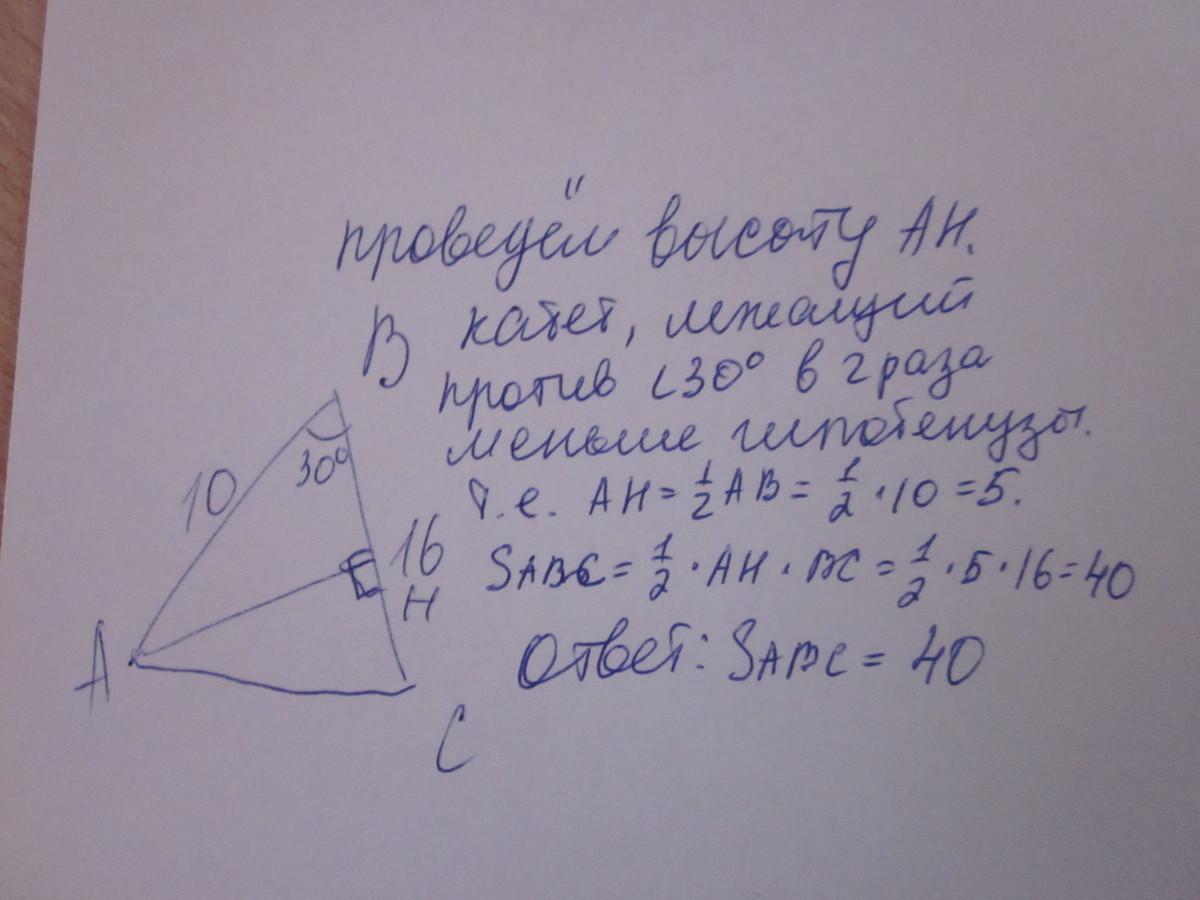 проведём высоту AH.
B
катет, лежащий
против <30° в 2 раза
меньше гипотенузы.
т.е. AH = 1/2 AB = 1/2 · 10 = 5.
10
30°
16
H
SABC = 1/2 · AH · BC = 1/2 · 5 · 16 = 40
A
Ответ: SABC = 40
C